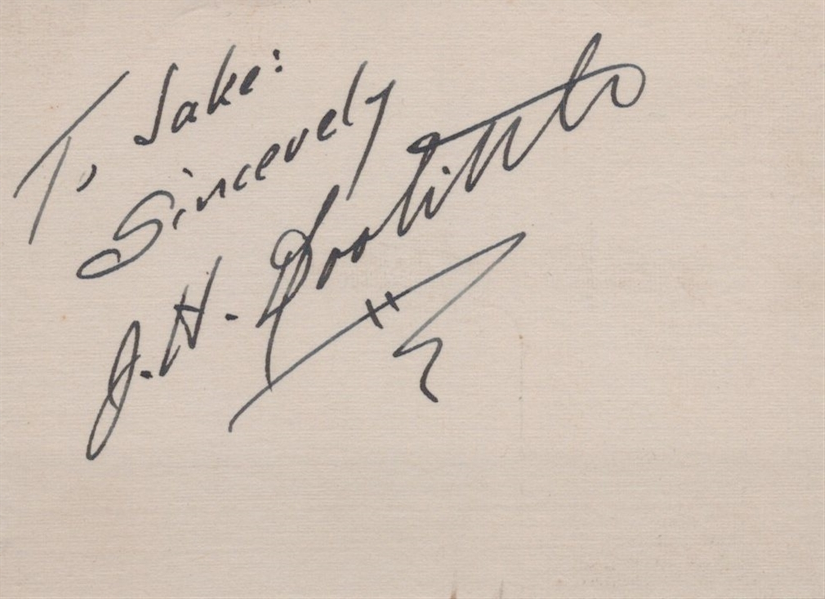 To Jake:
Sincerely
J. H. Doolittle